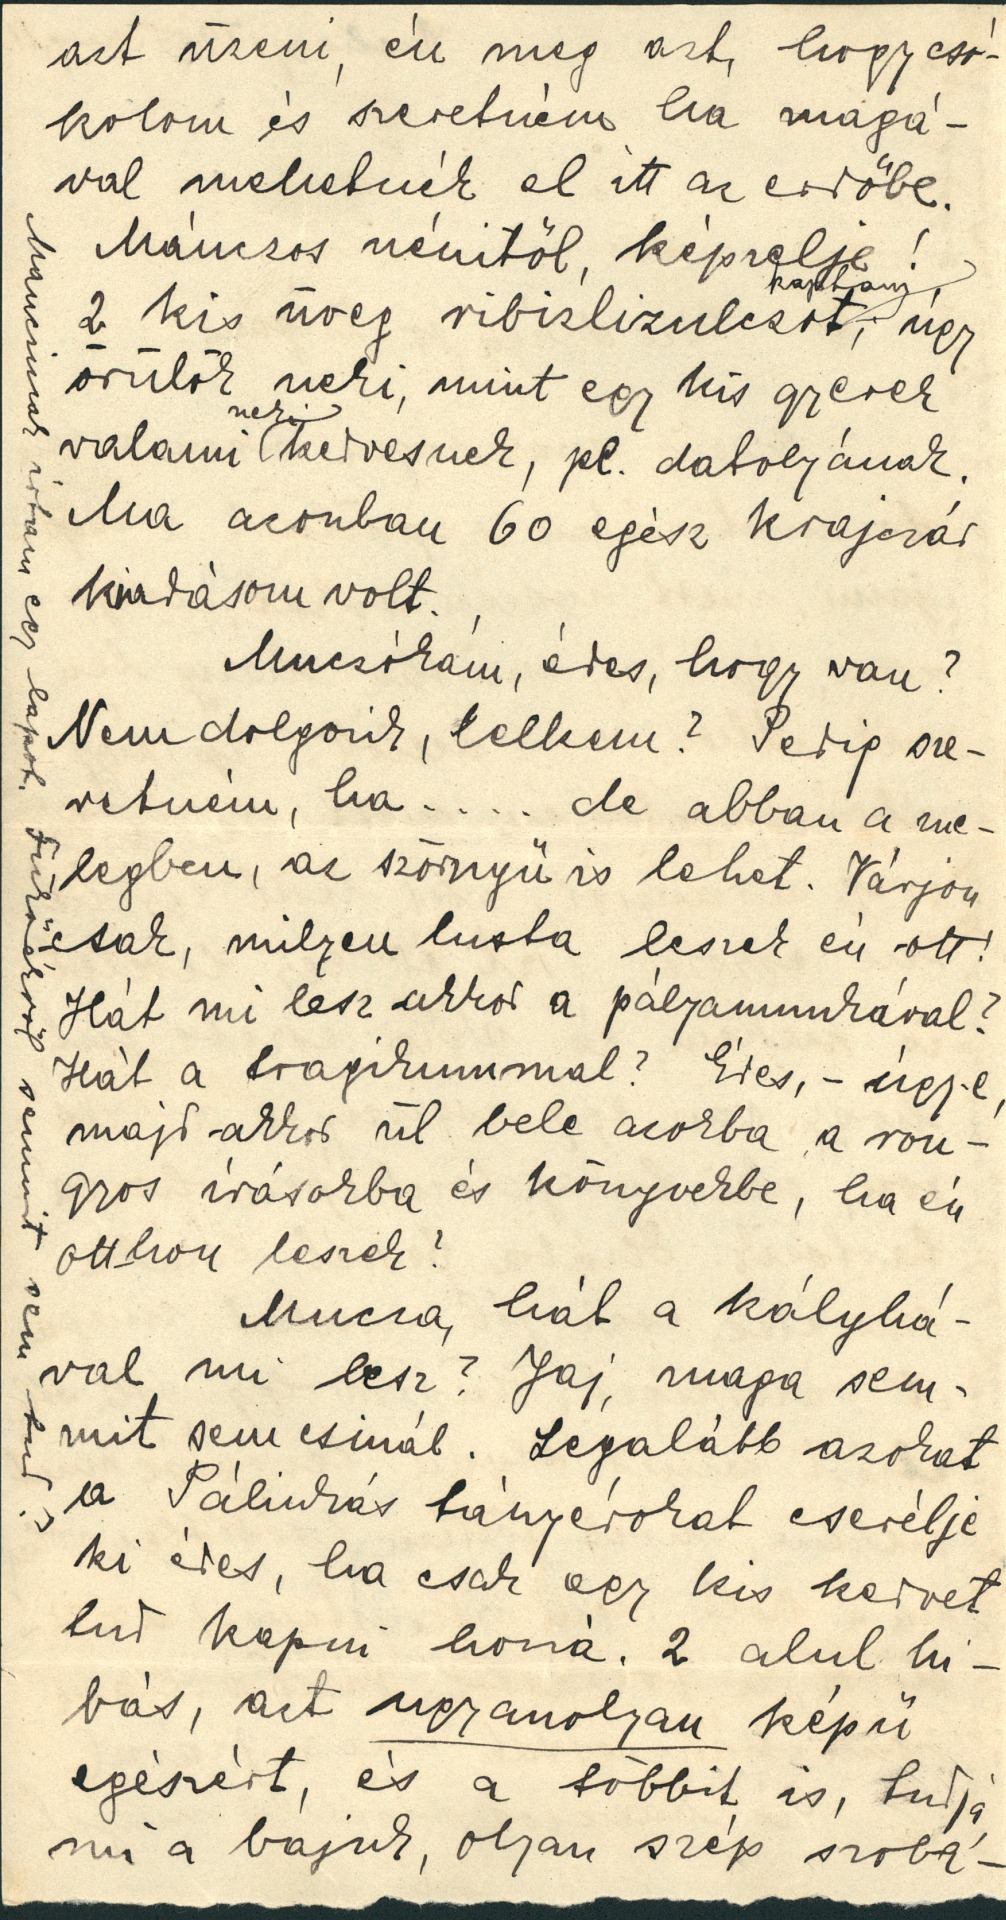 azt üzeni, én meg azt, hogy csó-
kolom és szeretném ha magá-
val mehetnék el itt az erdőbe.
Mánczos nénitől, képzelje!
kaptam
2 kis üveg ribizlizulczot, úgy
örülök neki, mint egy kis gyerek
neki
valami kedvesnek, pl. datolyának.
Ma azonban 60 egész krajczár
kiadásom volt.
Muczókám, édes, hogy van?
Nem dolgozik, lelkem? Pedig sze-
retném, ha .... de abban a me-
legben, az szörnyű is lehet. Várjon
csak, milyen lusta leszek én ott!
Hát mi lesz akkor a pályamunkával?
Hát a tragikummal? Édes, - úgy-e,
majd akkor ül bele azokba a ron-
gyos írásokba és könyvekbe, ha én
otthon leszek?
Mucza, hát a kályhá-
val mi lesz? Jaj, maga sem-
mit sem csinál. Legalább azokat
a Pálinkás tányérokat cserélje
ki édes, ha csak egy kis kedvet
tud kapni hozzá. 2 alul hi-
bás, azt ugyanolyan képű
egészért, és a többit is, tudja
mi a bajuk, olyan szép szobá-
Mamczinak írtam egy lapot. Fürdőékről semmit sem tud?